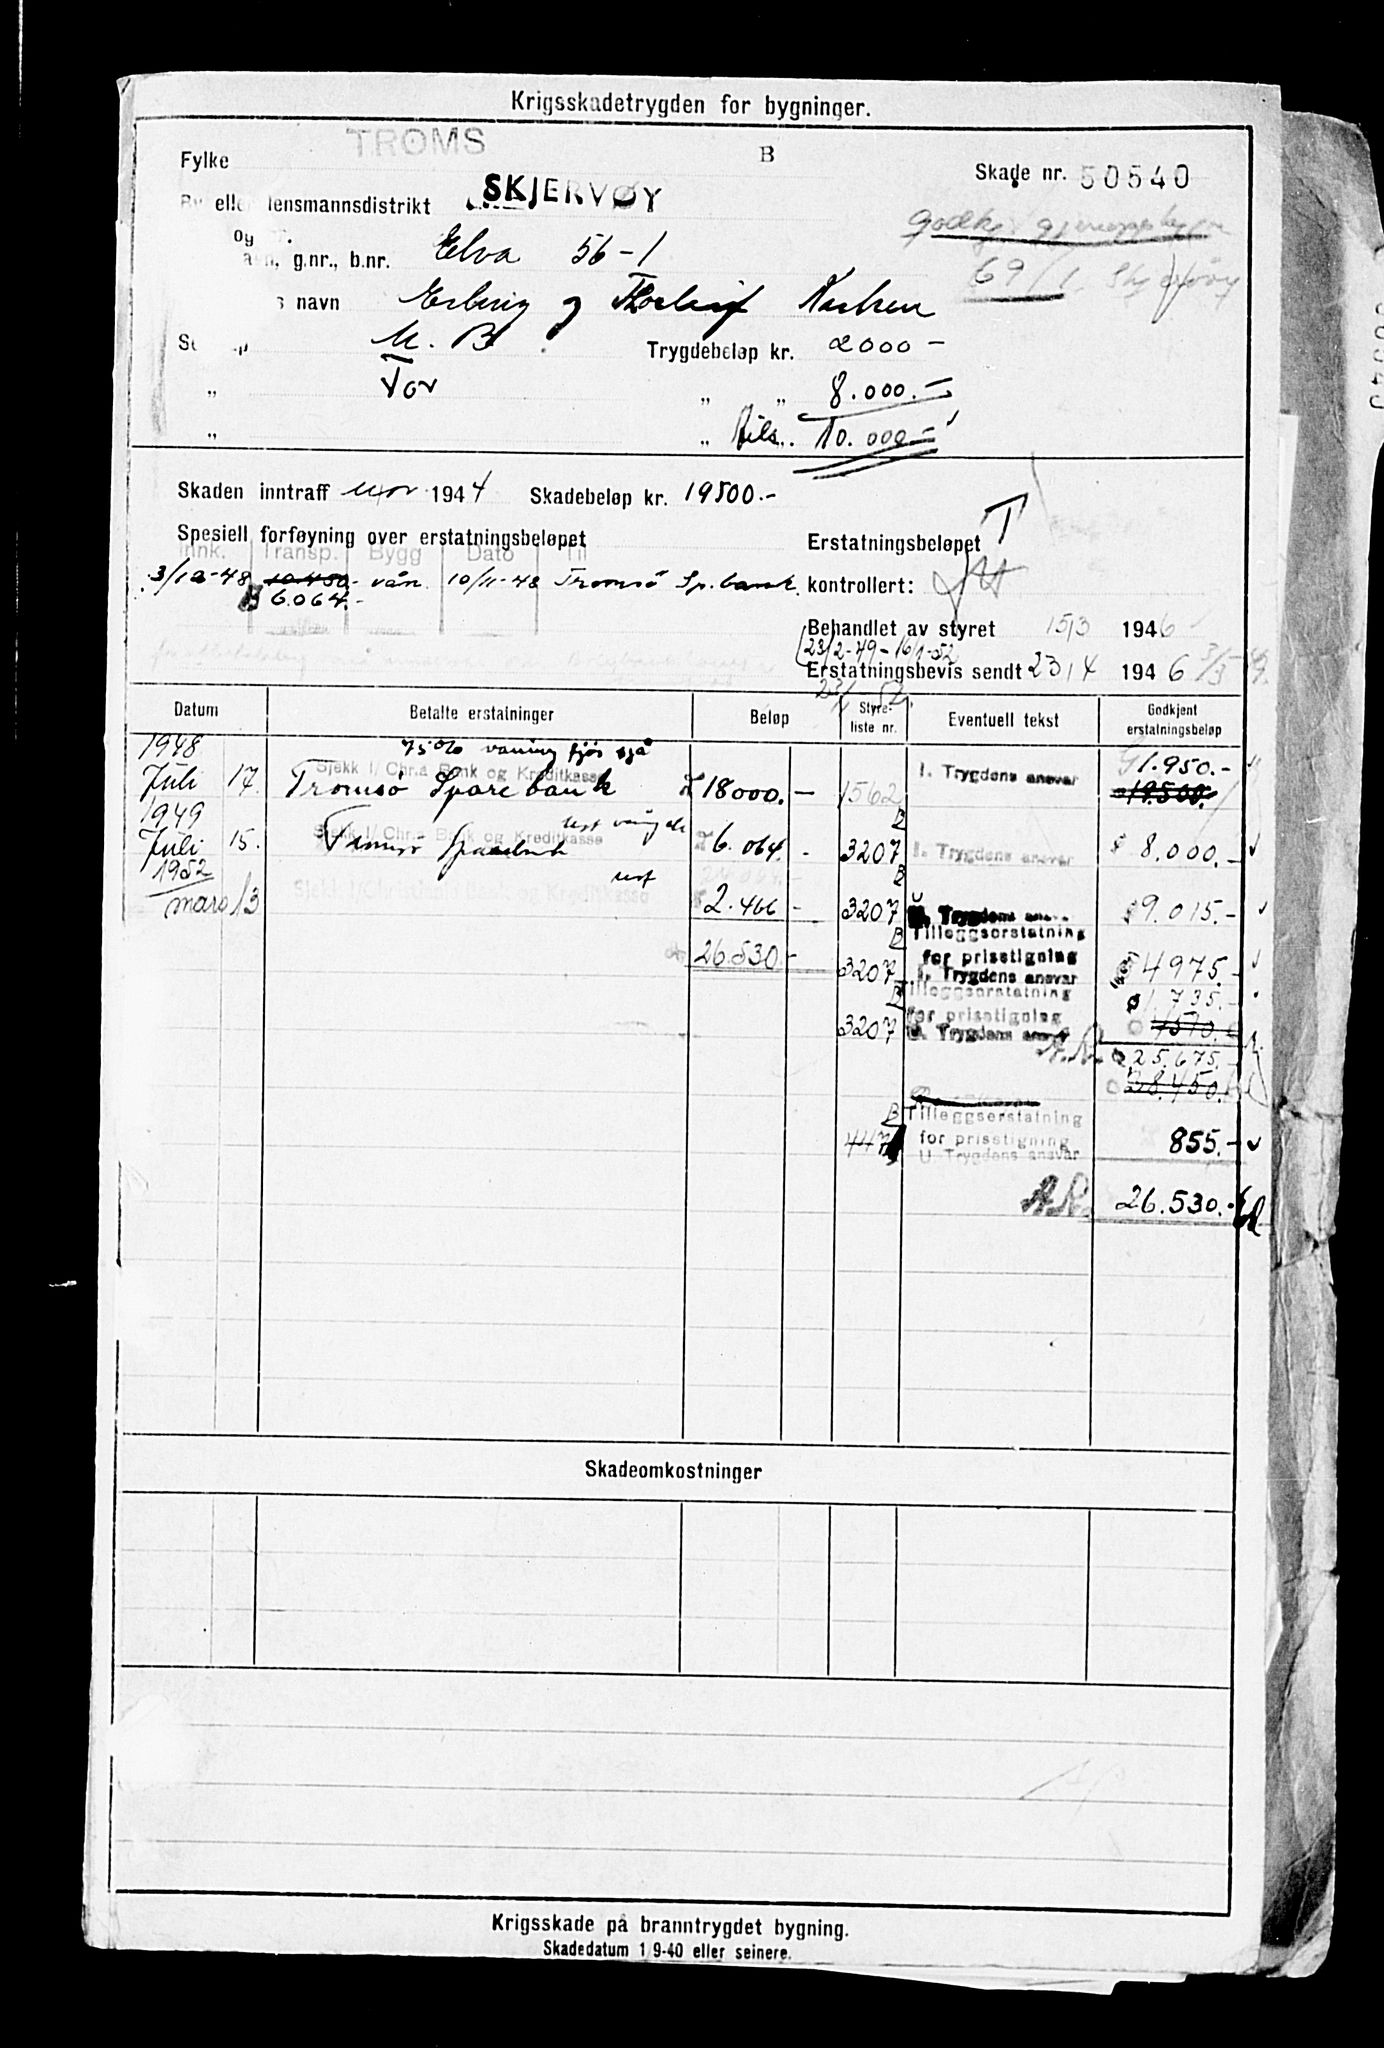 Krigsskadetrygden for bygninger.
TROMS
Fylke
B
Skade nr. 50540
eller lensmannsdistrikt SKJERVØY
og
g.nr., b.nr. Elva 56-1
69/1 Skjervøy
navn Erling og Thorleif
M. B. Trygdebeløp kr. 2000 -
" Vov " " 8.000.-
" " Tils. 10.000.-
Skaden inntraff nov 1944 Skadebeløp kr. 19500.-
Spesiell forføyning over erstatningsbeløpet
Erstatningsbeløpet
kontrollert:
Innk. Transp. Bygg Dato Til
3/12-48 10.450.- vån. 10/11-48 Tromsø Sp.bank.
6.064.-
Behandlet av styret 15/3 1946
23/2-49 - 16/1-52
Erstatningsbevis sendt 23/4 1946 3/3-49.
Datum Betalte erstatninger Beløp Styre-liste nr. Eventuell tekst Godkjent erstatningsbeløp
1948 75% våning fjøs sjå
Sjekk I/ Chr.a Bank og Kreditkasse
Juli 17. Tromsø Sparebank 18000. - 1562 I. Trygdens ansvar 11.950.-
19.500.-
1949 rest våning
Sjekk I/ Chr.a Bank og Kreditkasse
Juli 15. Tromsø Sparebank 6.064. - B 3207 I. Trygdens ansvar 8.000.-
1952 rest
Sjekk I/Christiania Bank og Kreditkasse
mars 13 2.466 - B 3207 U. Trygdens ansvar 9.015.-
26.530.- B 3207 Tilleggserstatning for prisstigning I. Trygdens ansvar 4975.-
B 3207 Tilleggserstatning for prisstigning U. Trygdens ansvar 1.735.-
25.675.-
28.450.
B 447 Tilleggserstatning for prisstigning U. Trygdens ansvar 855.-
26.530.-
Skadeomkostninger
Krigsskade på branntrygdet bygning.
Skadedatum 1/9-40 eller seinere.